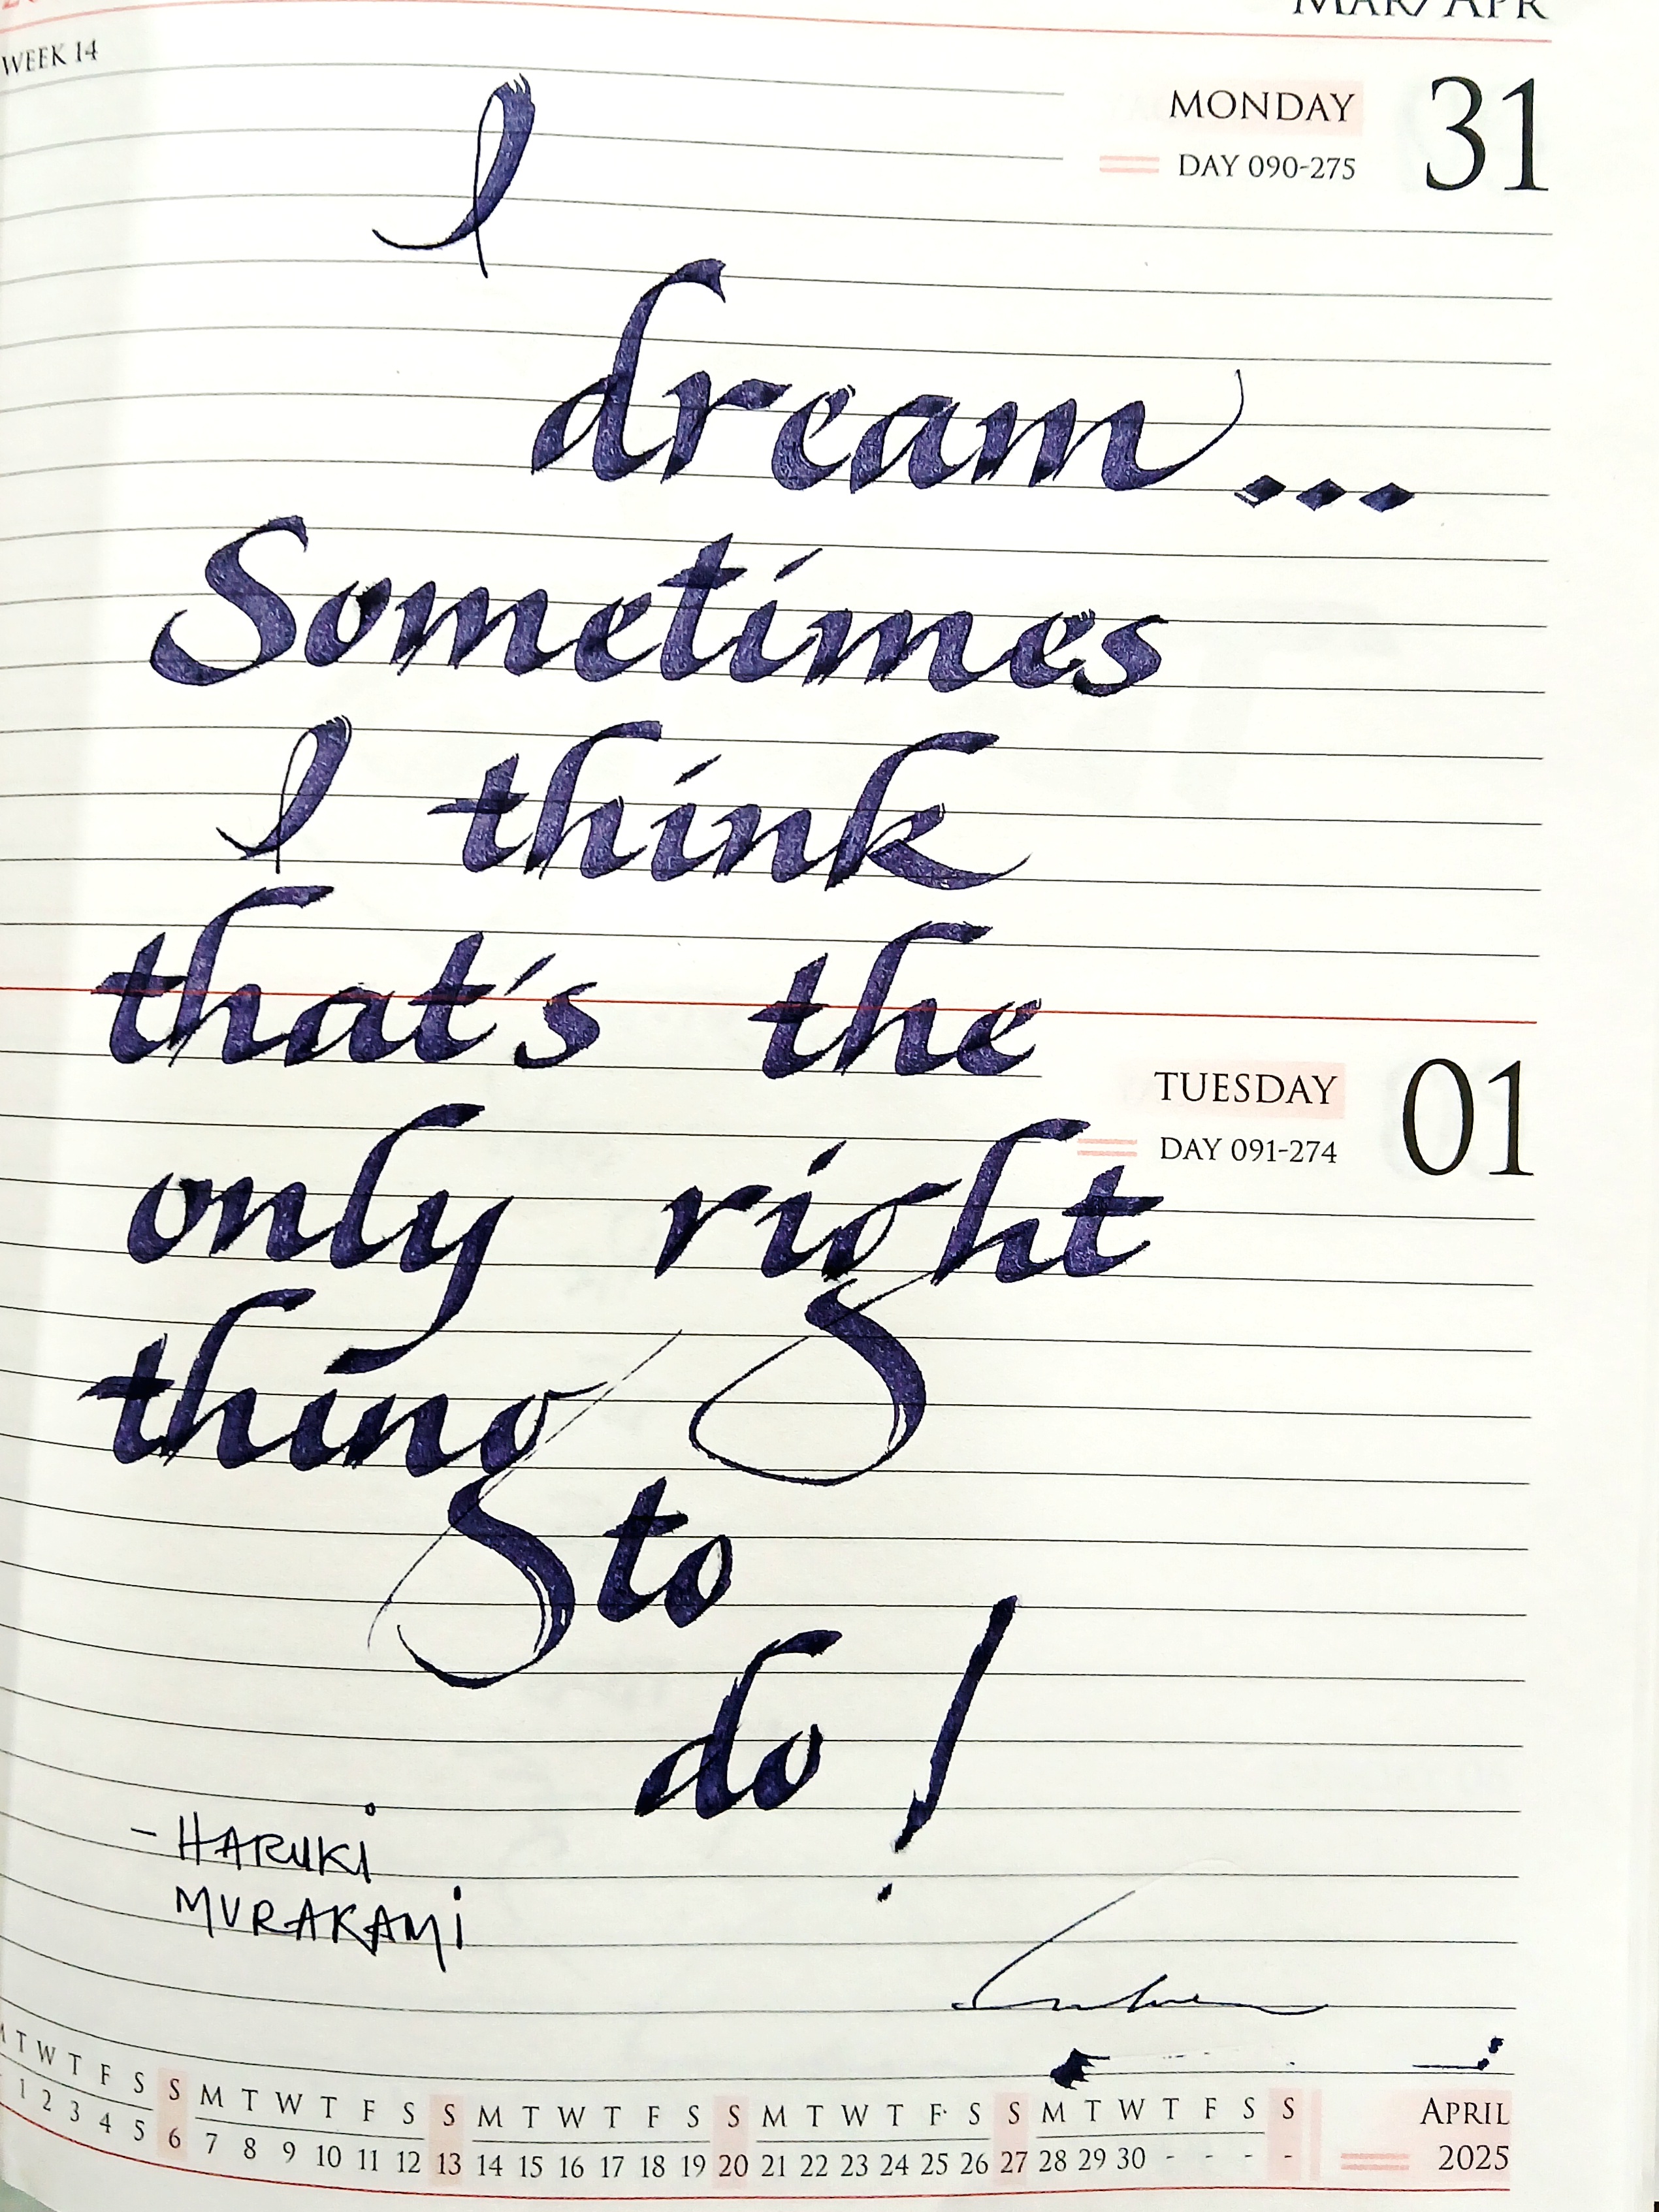 MAR/APR
WEEK 14
MONDAY 31
DAY 090-275
I
dream...
Sometimes
I think
that's the
TUESDAY 01
DAY 091-274
only right
thing
to
do!
- HARUKI
MURAKAMI
T W T F S S M T W T F S S M T W T F S S M T W T F S S M T W T F S S
1 2 3 4 5 6 7 8 9 10 11 12 13 14 15 16 17 18 19 20 21 22 23 24 25 26 27 28 29 30 - - - -
APRIL
2025